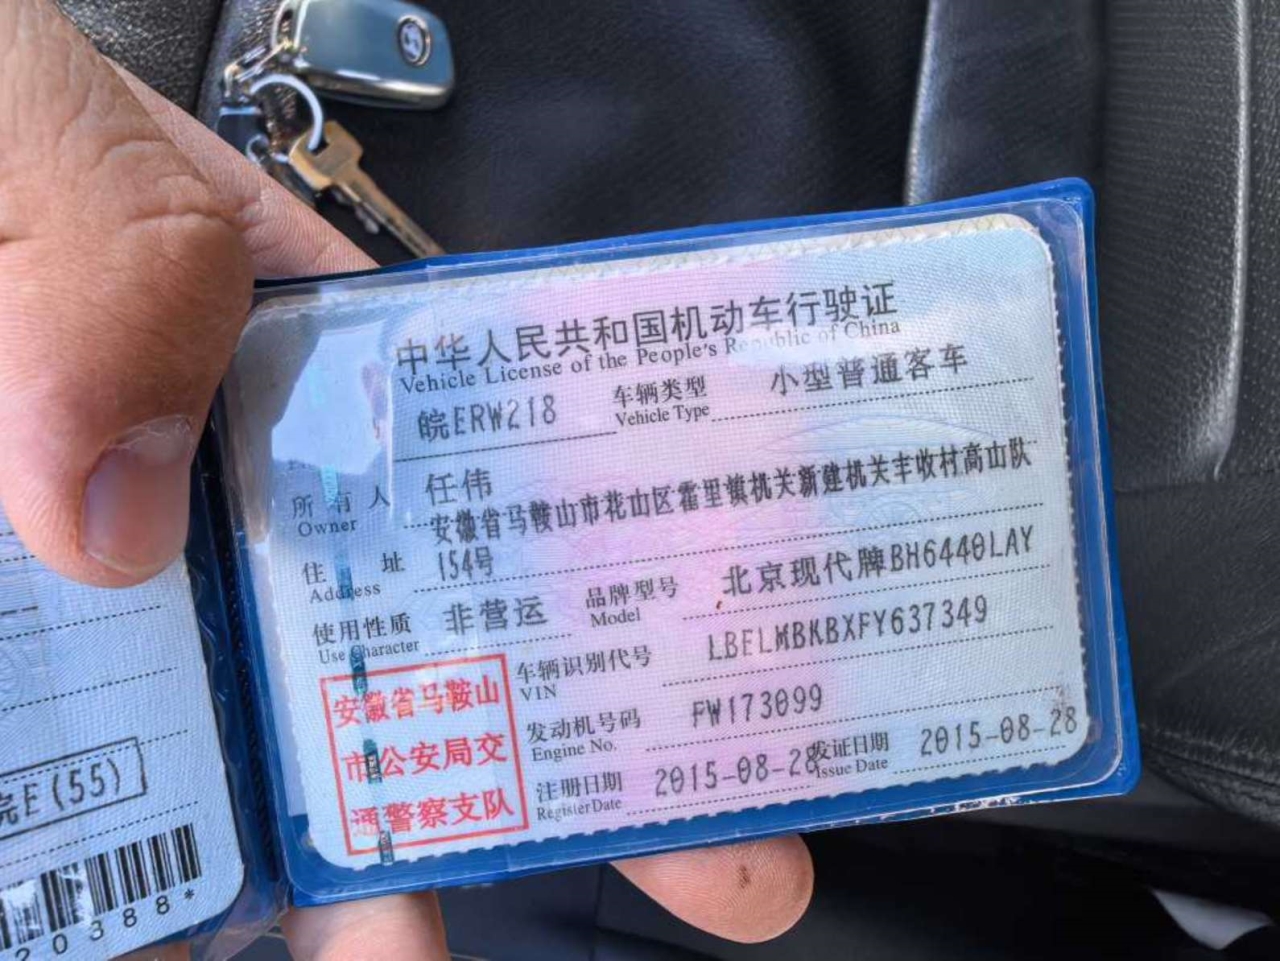 中华人民共和国机动车行驶证
Vehicle License of the People's Republic of China
皖ERW218
车辆类型 小型普通客车
Vehicle Type
所有人 任伟
Owner
安徽省马鞍山市花山区霍里镇机关新建机关丰收村高山队
住址 154号
Address
使用性质 非营运
Use Character
品牌型号 北京现代牌BH6440LAY
Model
车辆识别代号 LBELMBKBXFY637349
VIN
发动机号码 FW173099
Engine No.
注册日期 2015-08-28
Register Date
发证日期 2015-08-28
Issue Date
安徽省马鞍山
市公安局交
通警察支队
皖E(55)
20388*